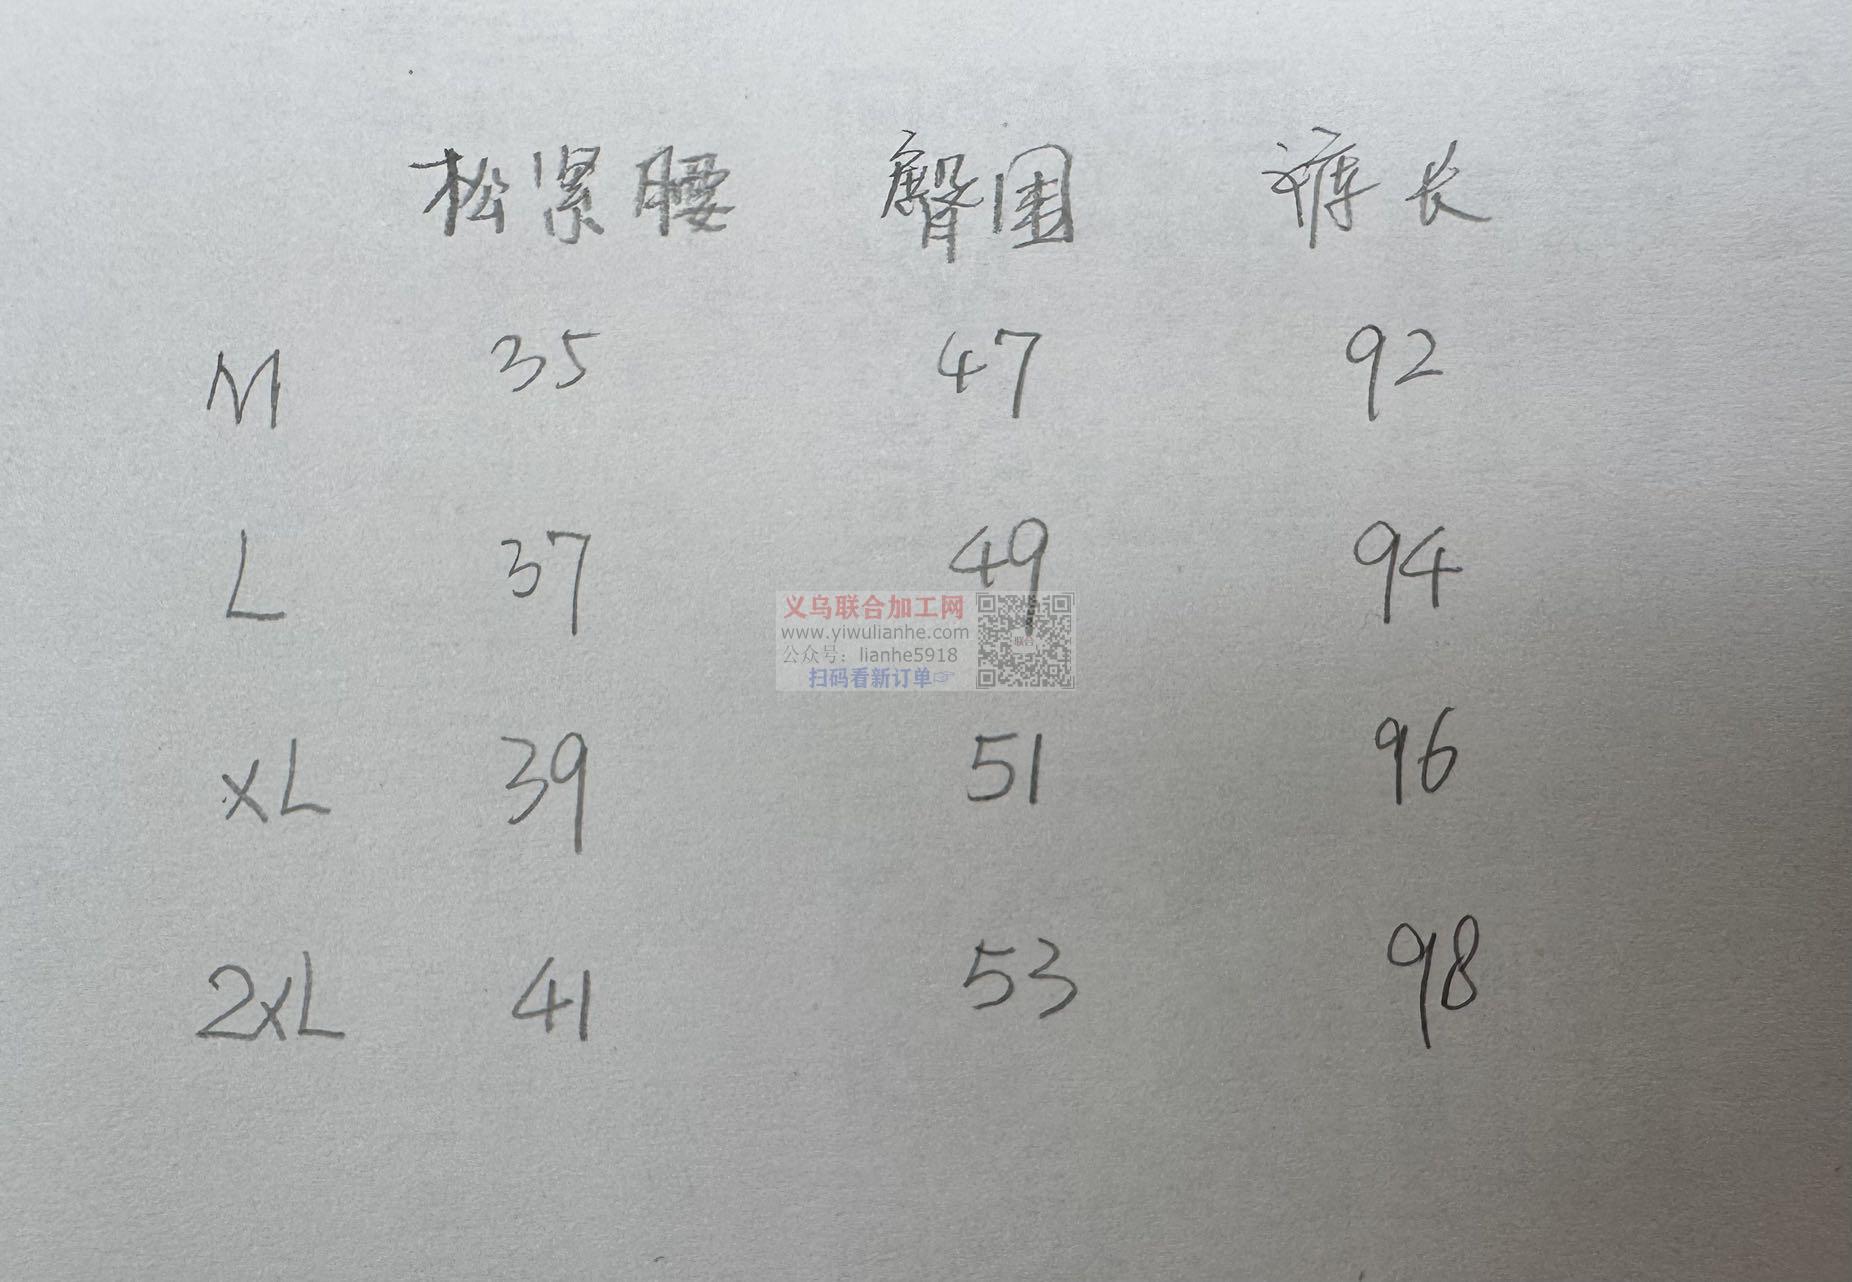 松紧腰 臀围 裤长
M 35 47 92
L 37 49 94
义乌联合加工网
www.yiwulianhe.com
公众号：lianhe5918
扫码看新订单☞
联合
XL 39 51 96
2XL 41 53 98